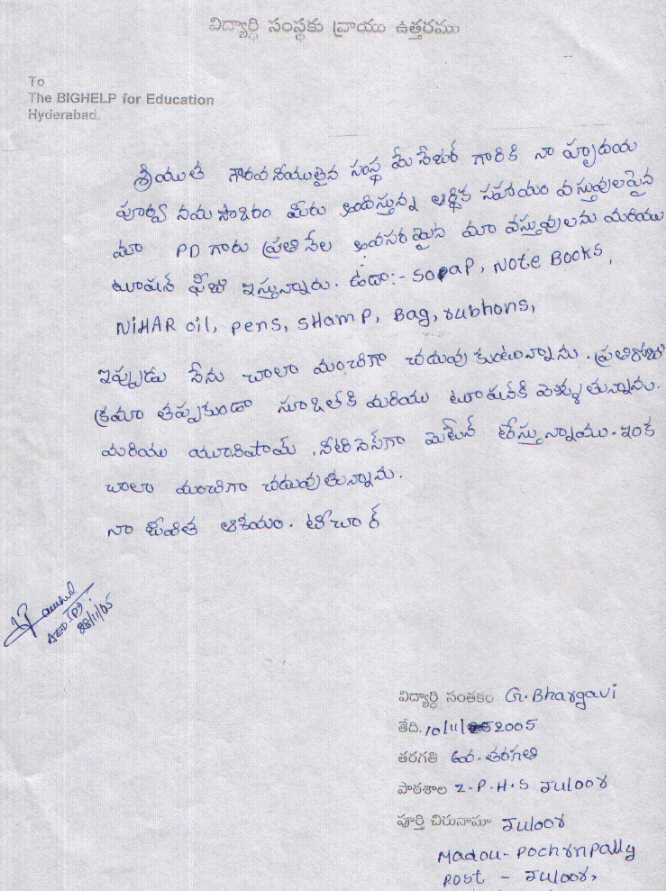 విద్యార్థి సంస్థకు వ్రాయు ఉత్తరము
To
The BIGHELP for Education
Hyderabad.
శ్రీయుత గౌరవనీయులైన సంస్థ మేనేజర్ గారికి నా హృదయ
పూర్వ నమస్కారం మీరు అందిస్తున్న ఆర్థిక సహాయం వస్తువులపైన
మా PD గారు ప్రతి నెల అవసరమైన మా వస్తువులను మరియు
టూషన్ ఫీజు ఇస్తున్నారు. ఉదా:- Sopap, Note Books,
NiHAR oil, pens, SHamp, Bag, rubhons,
ఇప్పుడు నేను చాలా మంచిగా చదువుకుంటున్నాను. ప్రతిరోజు
క్రమం తప్పకుండా స్కూల్‌కి మరియు టూషన్‌కి వెళ్ళుతున్నాను.
మరియు యూనిఫామ్ .నీట్‌నెస్‌గా మెయిన్‌టెన్ చేస్తున్నాము. ఇంక
చాలా మంచిగా చదువుతున్నాను.
నా జీవిత ఆశయం. టీచర్
28/11/05
విద్యార్థి సంతకం G. Bhargavi
తేది. 10/11/2005
తరగతి 8వ. తరగతి
పాఠశాల Z.P.H.S Juloor
పూర్తి చిరునామా Juloor
Madou- Pochonpally
Post - Juloor,